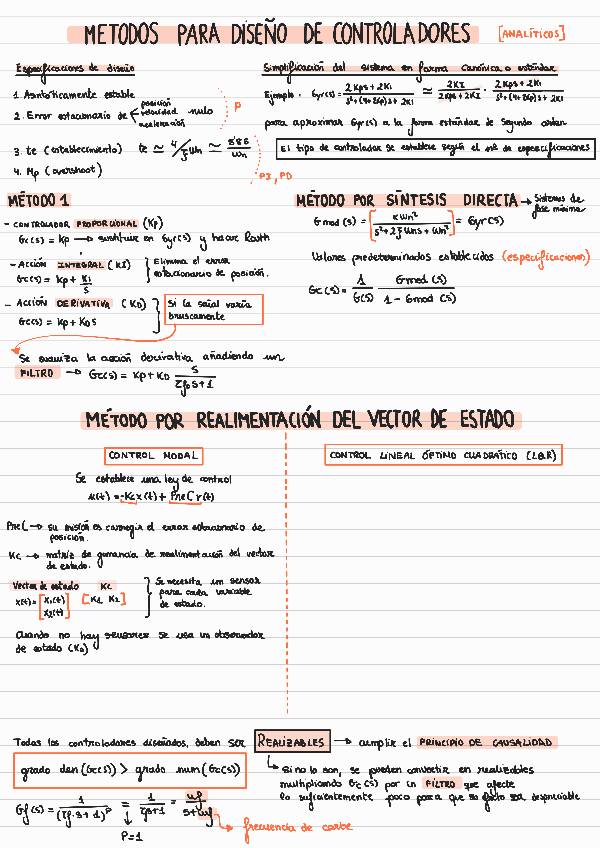 METODOS PARA DISEÑO DE CONTROLADORES [ANALÍTICOS]
Especificaciones de diseño
1. Asintóticamente estable
2. Error estacionario de posición velocidad aceleración nulo
P
3. te (establecimiento) te ≃ 4/ξωn ≃
4. Mp (overshoot)
PI, PD
Simplificación del sistema en forma canónica o estándar
Ejemplo · Gyr(s) = (2Kps + 2KI)/(s² + (4+2Kp)s + 2KI) ≃ 2KI/(2Kps + 2KI) · (2Kps + 2KI)/(s² + (4+2Kp)s + 2KI)
para aproximar Gyr(s) a la forma estándar de segundo orden
El tipo de controlador se establece según el nº de especificaciones
MÉTODO 1
- CONTROLADOR PROPORCIONAL (Kp)
Gc(s) = Kp → sustituir en Gyr(s) y hacer Routh
- ACCIÓN INTEGRAL (KI)
Gc(s) = Kp + KI/s
Elimina el error
estacionario de posición.
- ACCIÓN DERIVATIVA (KD)
Gc(s) = Kp + KDs
Si la señal varía
bruscamente
Se suaviza la acción derivativa añadiendo un
FILTRO → Gc(s) = Kp + KD s/(τfDs+1)
MÉTODO POR SÍNTESIS DIRECTA → Sistemas de
fase mínima
Gmod(s) = [KWn²/(s² + 2ξWns + Wn²)] = Gyr(s)
Valores predeterminados establecidos (especificaciones)
Gc(s) = 1/G(s) · Gmod(s)/(1 - Gmod(s))
MÉTODO POR REALIMENTACIÓN DEL VECTOR DE ESTADO
CONTROL MODAL
Se establece una ley de control
u(t) = -Kcx(t) + PreC r(t)
PreC → su misión es corregir el error estacionario de
posición.
Kc → matriz de ganancia de realimentación del vector
de estado.
Vector de estado Kc
x(t) = [x1(t) x2(t)] [K1 K2]
Se necesita un sensor
para cada variable
de estado.
Cuando no hay sensores se usa un observador
de estado (Ko)
CONTROL LINEAL ÓPTIMO CUADRÁTICO (LQR)
Todos los controladores diseñados, deben ser REALIZABLES → cumplir el PRINCIPIO DE CAUSALIDAD
grado den(Gc(s)) > grado num(Gc(s))
Si no lo son, se pueden convertir en realizables
multiplicando Gc(s) por un FILTRO que afecte
lo suficientemente poco para que su efecto sea despreciable
Gf(s) = 1/(τf·s+1)^P = 1/(τs+1) = wf/(s+wf)
P=1
frecuencia de corte